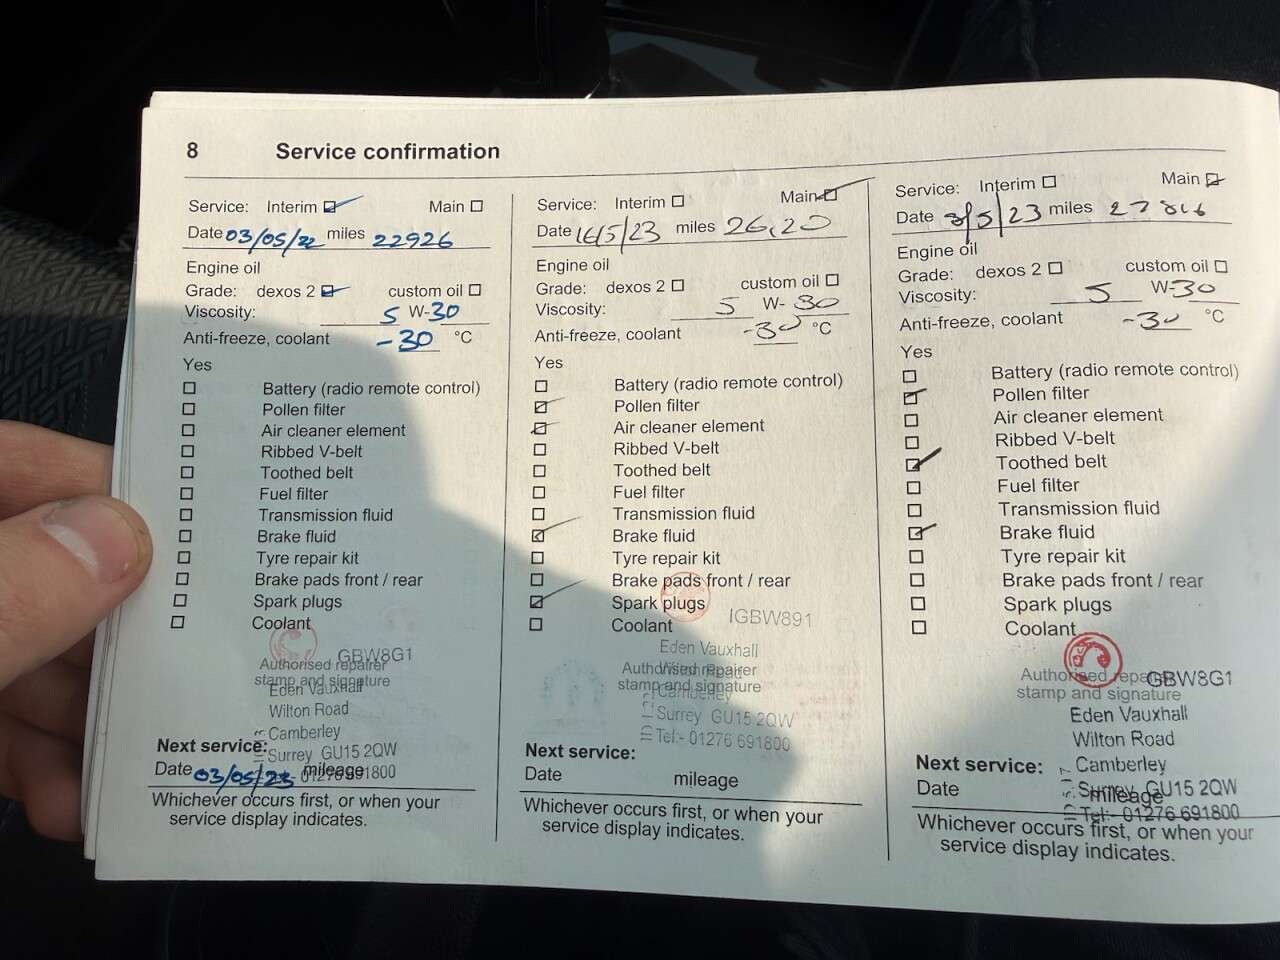 8 Service confirmation
Service: Interim Main
Date 03/05/22 miles 22926
Engine oil
Grade: dexos 2 custom oil
Viscosity: 5 W-30
Anti-freeze, coolant -30 °C
Yes
Battery (radio remote control)
Pollen filter
Air cleaner element
Ribbed V-belt
Toothed belt
Fuel filter
Transmission fluid
Brake fluid
Tyre repair kit
Brake pads front / rear
Spark plugs
Coolant
GBW8G1
Authorised repairer
stamp and signature
Eden Vauxhall
Wilton Road
Camberley
Surrey GU15 2QW
01276 691800
Next service:
Date 03/05/23 mileage
Whichever occurs first, or when your
service display indicates.
Service: Interim Main
Date 16/5/23 miles 26,20
Engine oil
Grade: dexos 2 custom oil
Viscosity: 5 W-30
Anti-freeze, coolant -30 °C
Yes
Battery (radio remote control)
Pollen filter
Air cleaner element
Ribbed V-belt
Toothed belt
Fuel filter
Transmission fluid
Brake fluid
Tyre repair kit
Brake pads front / rear
Spark plugs
Coolant
IGBW891
Eden Vauxhall
Authorised repairer
Wilton Road
stamp and signature
Camberley
Surrey GU15 2QW
Tel:- 01276 691800
Next service:
Date mileage
Whichever occurs first, or when your
service display indicates.
Service: Interim Main
Date /5/23 miles 27816
Engine oil
Grade: dexos 2 custom oil
Viscosity: 5 W-30
Anti-freeze, coolant -30 °C
Yes
Battery (radio remote control)
Pollen filter
Air cleaner element
Ribbed V-belt
Toothed belt
Fuel filter
Transmission fluid
Brake fluid
Tyre repair kit
Brake pads front / rear
Spark plugs
Coolant
Authorised repairer
GBW8G1
stamp and signature
Eden Vauxhall
Wilton Road
Camberley
Surrey GU15 2QW
Tel:- 01276 691800
Next service:
Date mileage
Whichever occurs first, or when your
service display indicates.